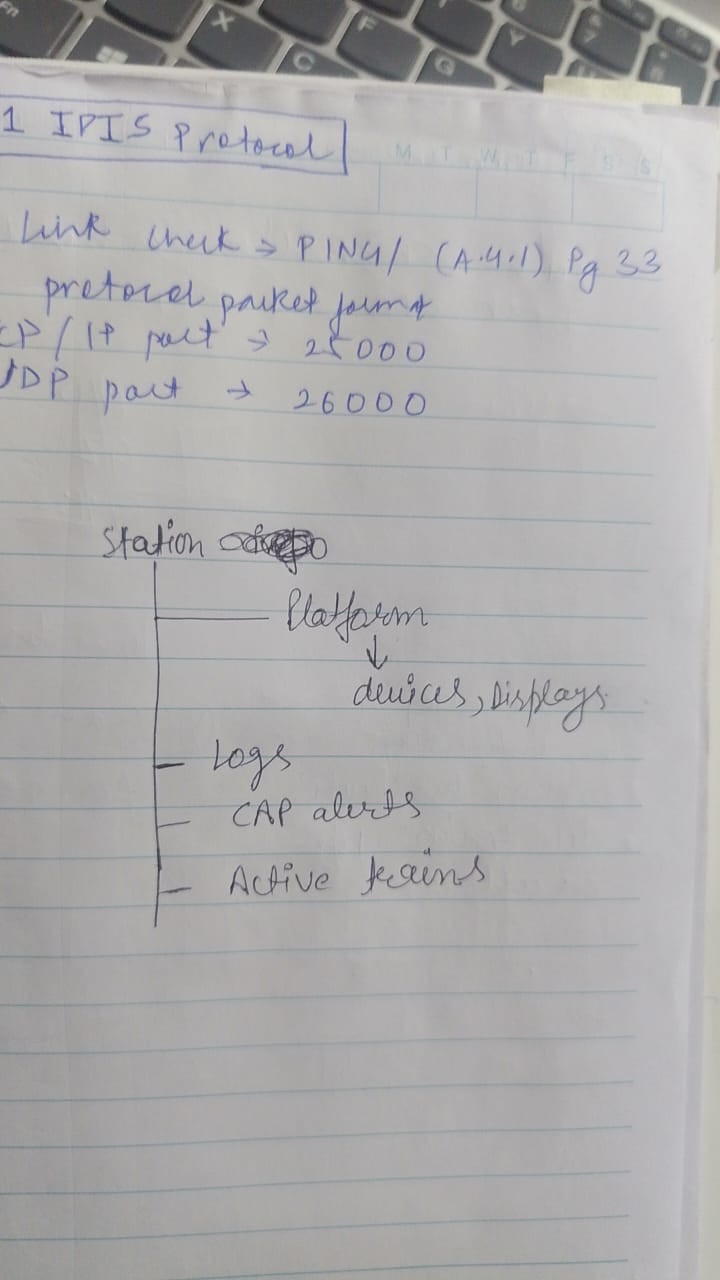 1 IPIS Protocol
M T W T F S S
Link check → PING/ (A.4.1) Pg 33
protocol packet format
CP/IP port → 25000
UDP port → 26000
Station
Platform
↓
devices, Displays
Logs
CAP alerts
Active trains